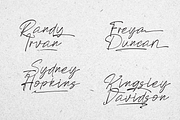 Randy
Irvan
Freya
Duncan
Sydney
Hopkins
Kingsley
Davidson